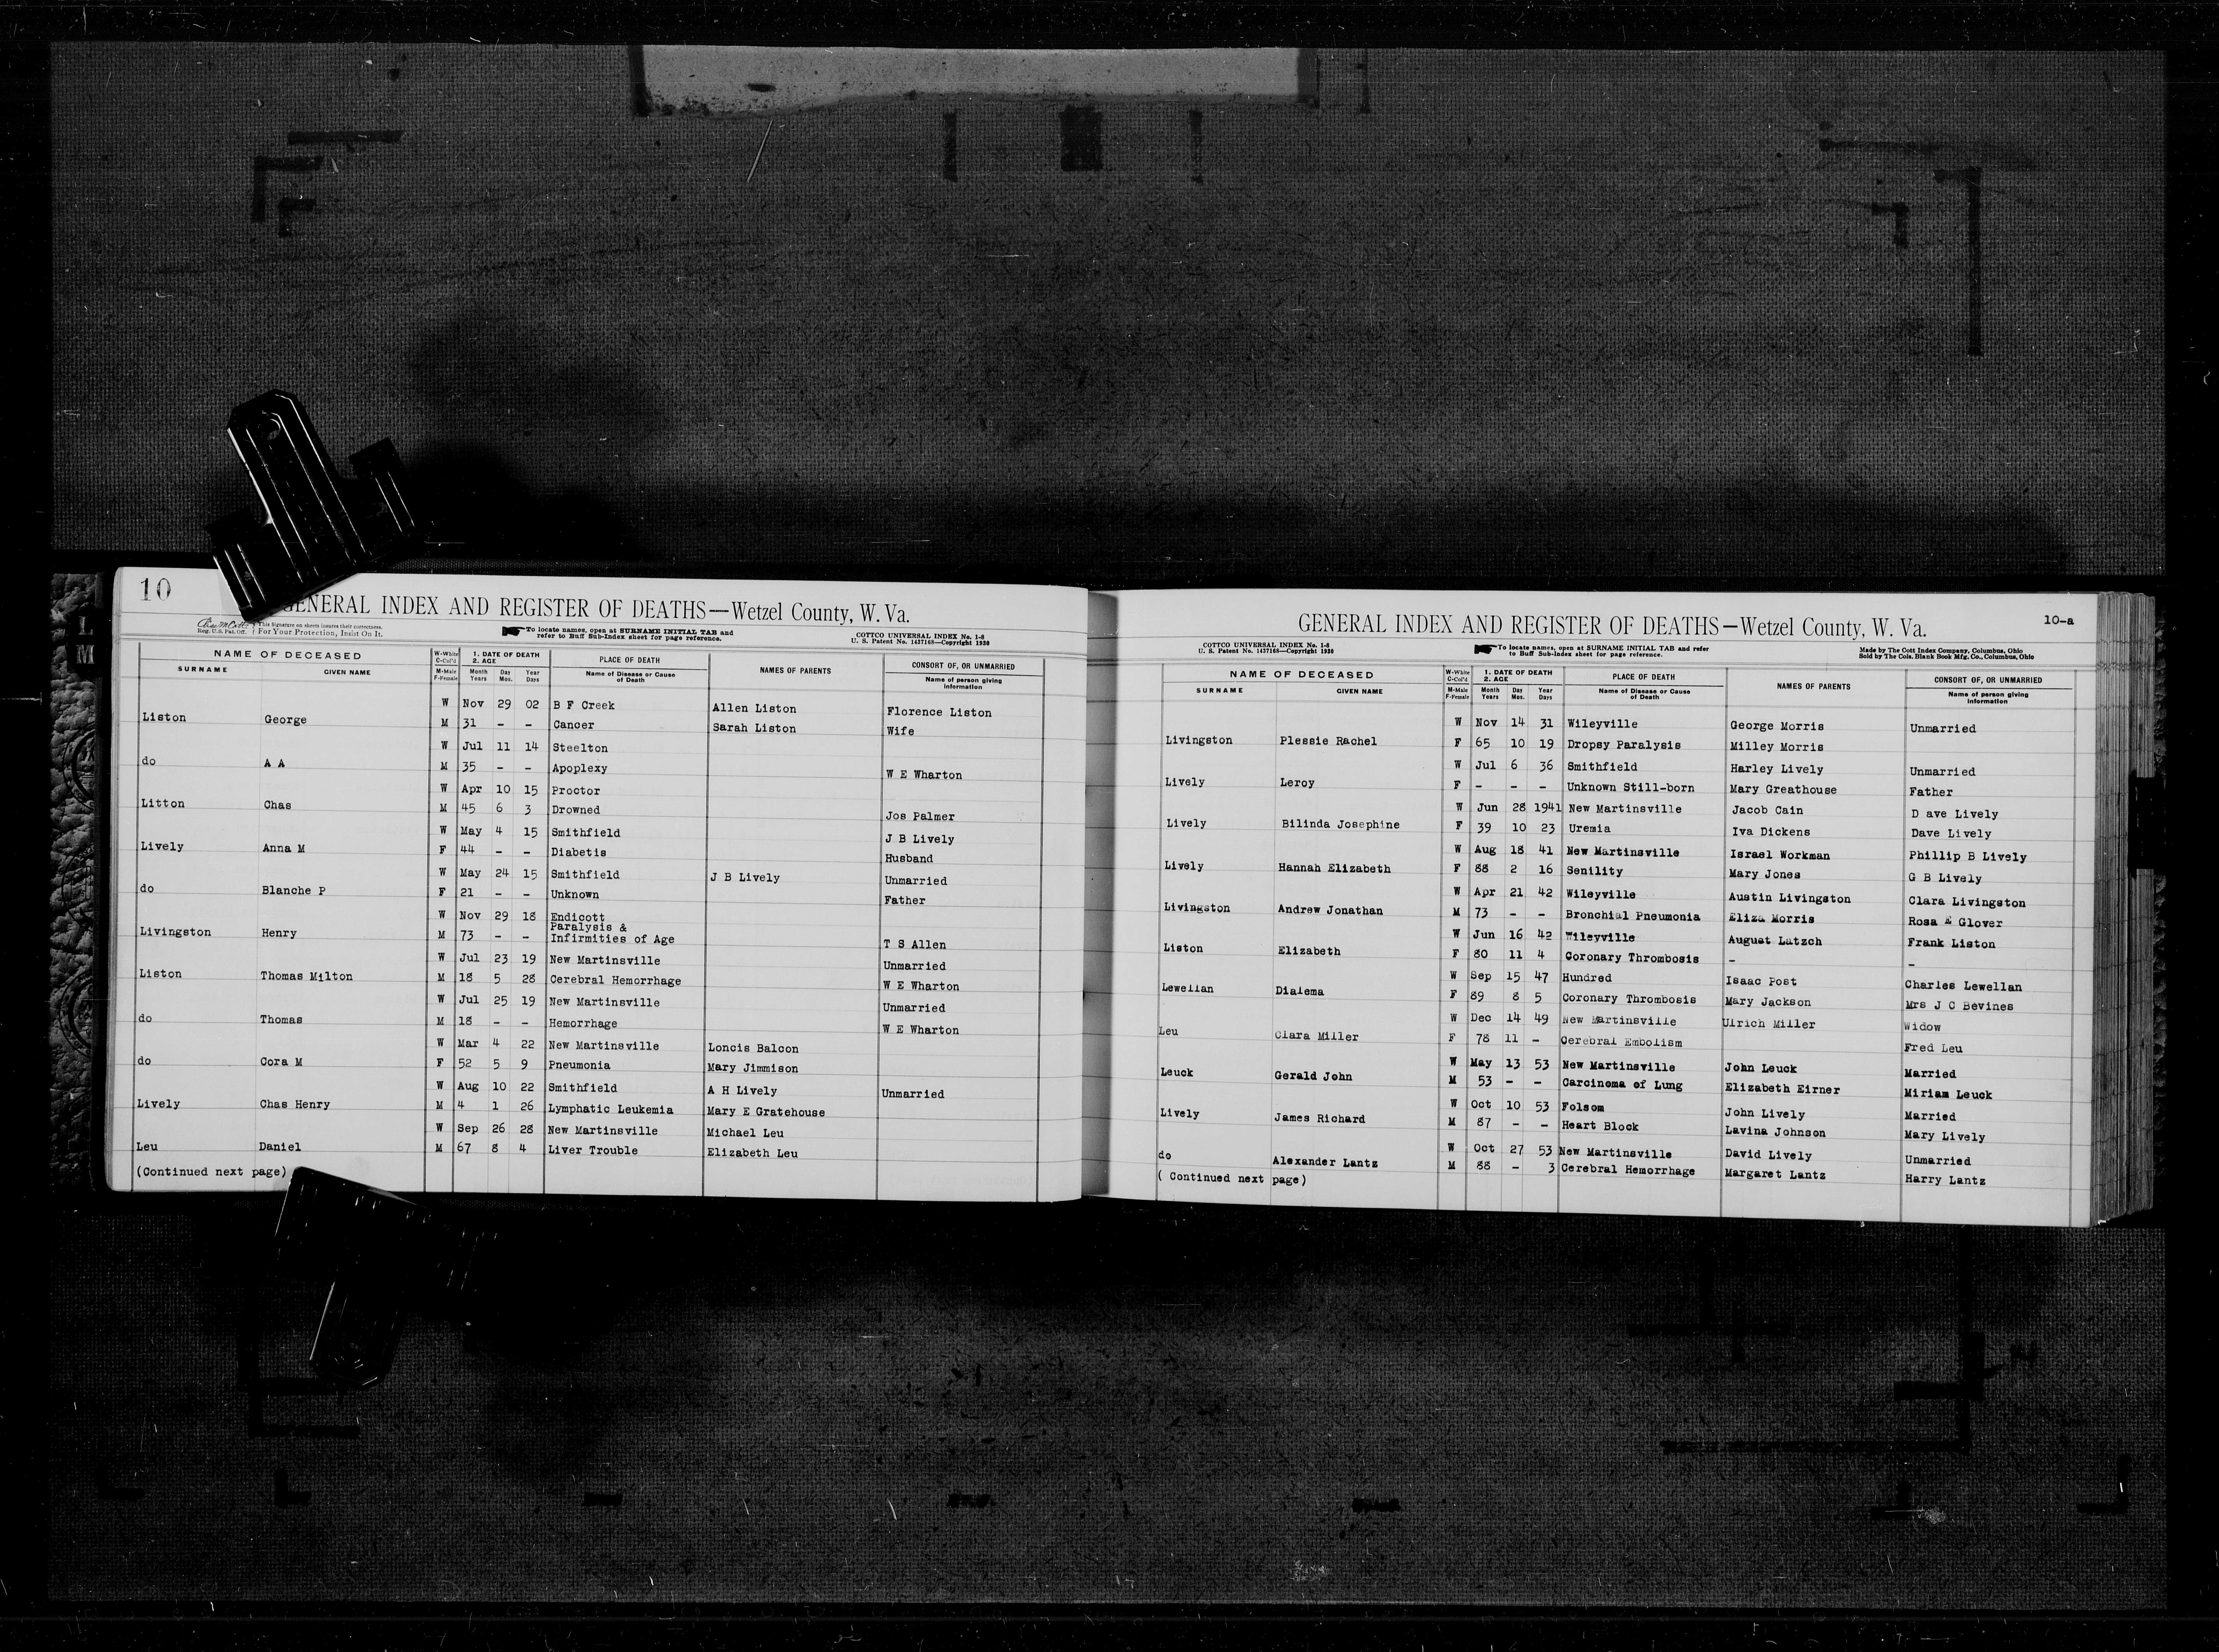 10
GENERAL INDEX AND REGISTER OF DEATHS—Wetzel County, W. Va.
This Signature on sheets insures their correctness.
Reg. U.S. Pat. Off. For Your Protection, Insist On It.
To locate names, open at SURNAME INITIAL TAB and
refer to Buff Sub-Index sheet for page reference.
COTTCO UNIVERSAL INDEX No. 1-8
U. S. Patent No. 1437168—Copyright 1930
NAME OF DECEASED W-White C-Col'd 1. DATE OF DEATH 2. AGE PLACE OF DEATH NAMES OF PARENTS CONSORT OF, OR UNMARRIED
SURNAME GIVEN NAME M-Male F-Female Month Years Day Mos. Year Days Name of Disease or Cause of Death Name of person giving information
W Nov 29 02 B F Creek Allen Liston Florence Liston
Liston George M 31 - - Cancer Sarah Liston Wife
W Jul 11 14 Steelton
do A A M 35 - - Apoplexy W E Wharton
W Apr 10 15 Proctor
Litton Chas M 45 6 3 Drowned Jos Palmer
W May 4 15 Smithfield J B Lively
Lively Anna M F 44 - - Diabetis Husband
W May 24 15 Smithfield J B Lively Unmarried
do Blanche P F 21 - - Unknown Father
W Nov 29 18 Endicott
Paralysis &
Livingston Henry M 73 - - Infirmities of Age T S Allen
W Jul 23 19 New Martinsville Unmarried
Liston Thomas Milton M 18 5 28 Cerebral Hemorrhage W E Wharton
W Jul 25 19 New Martinsville Unmarried
do Thomas M 18 - - Hemorrhage W E Wharton
W Mar 4 22 New Martinsville Loncis Balcon
do Cora M F 52 5 9 Pneumonia Mary Jimmison
W Aug 10 22 Smithfield A H Lively Unmarried
Lively Chas Henry M 4 1 26 Lymphatic Leukemia Mary E Gratehouse
W Sep 26 28 New Martinsville Michael Leu
Leu Daniel M 67 8 4 Liver Trouble Elizabeth Leu
(Continued next page)
GENERAL INDEX AND REGISTER OF DEATHS—Wetzel County, W. Va.
10-a
COTTCO UNIVERSAL INDEX No. 1-8
U. S. Patent No. 1437168—Copyright 1930
To locate names, open at SURNAME INITIAL TAB and refer
to Buff Sub-Index sheet for page reference.
Made by The Cott Index Company, Columbus, Ohio
Sold by The Cols. Blank Book Mfg. Co., Columbus, Ohio
NAME OF DECEASED W-White C-Col'd 1. DATE OF DEATH 2. AGE PLACE OF DEATH NAMES OF PARENTS CONSORT OF, OR UNMARRIED
SURNAME GIVEN NAME M-Male F-Female Month Years Day Mos. Year Days Name of Disease or Cause of Death Name of person giving information
W Nov 14 31 Wileyville George Morris Unmarried
Livingston Plessie Rachel F 65 10 19 Dropsy Paralysis Milley Morris
W Jul 6 36 Smithfield Harley Lively Unmarried
Lively Leroy F - - - Unknown Still-born Mary Greathouse Father
W Jun 28 1941 New Martinsville Jacob Cain D ave Lively
Lively Bilinda Josephine F 39 10 23 Uremia Iva Dickens Dave Lively
W Aug 18 41 New Martinsville Israel Workman Phillip B Lively
Lively Hannah Elizabeth F 88 2 16 Senility Mary Jones G B Lively
W Apr 21 42 Wileyville Austin Livingston Clara Livingston
Livingston Andrew Jonathan M 73 - - Bronchial Pneumonia Eliza Morris Rosa E Glover
W Jun 16 42 Wileyville August Latzch Frank Liston
Liston Elizabeth F 80 11 4 Coronary Thrombosis - -
W Sep 15 47 Hundred Isaac Post Charles Lewellan
Lewellan Dialema F 89 8 5 Coronary Thrombosis Mary Jackson Mrs J C Bevines
W Dec 14 49 New Martinsville Ulrich Miller Widow
Leu Clara Miller F 78 11 - Cerebral Embolism Fred Leu
W May 13 53 New Martinsville John Leuck Married
Leuck Gerald John M 53 - - Carcinoma of Lung Elizabeth Eirner Miriam Leuck
W Oct 10 53 Folsom John Lively Married
Lively James Richard M 87 - - Heart Block Lavina Johnson Mary Lively
W Oct 27 53 New Martinsville David Lively Unmarried
do Alexander Lantz M 88 - 3 Cerebral Hemorrhage Margaret Lantz Harry Lantz
( Continued next page)
L
M